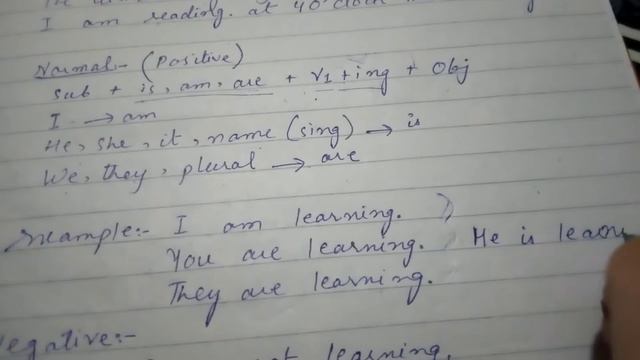 I am reading. at 4 O'clock
Normal:- (Positive)
sub + is, am, are + V1 + ing + Obj
I → am
He, she, it, name (sing) → is
We, they, plural → are
Example:- I am learning.
You are learning. He is
They are learning.
Negative:-
learning.